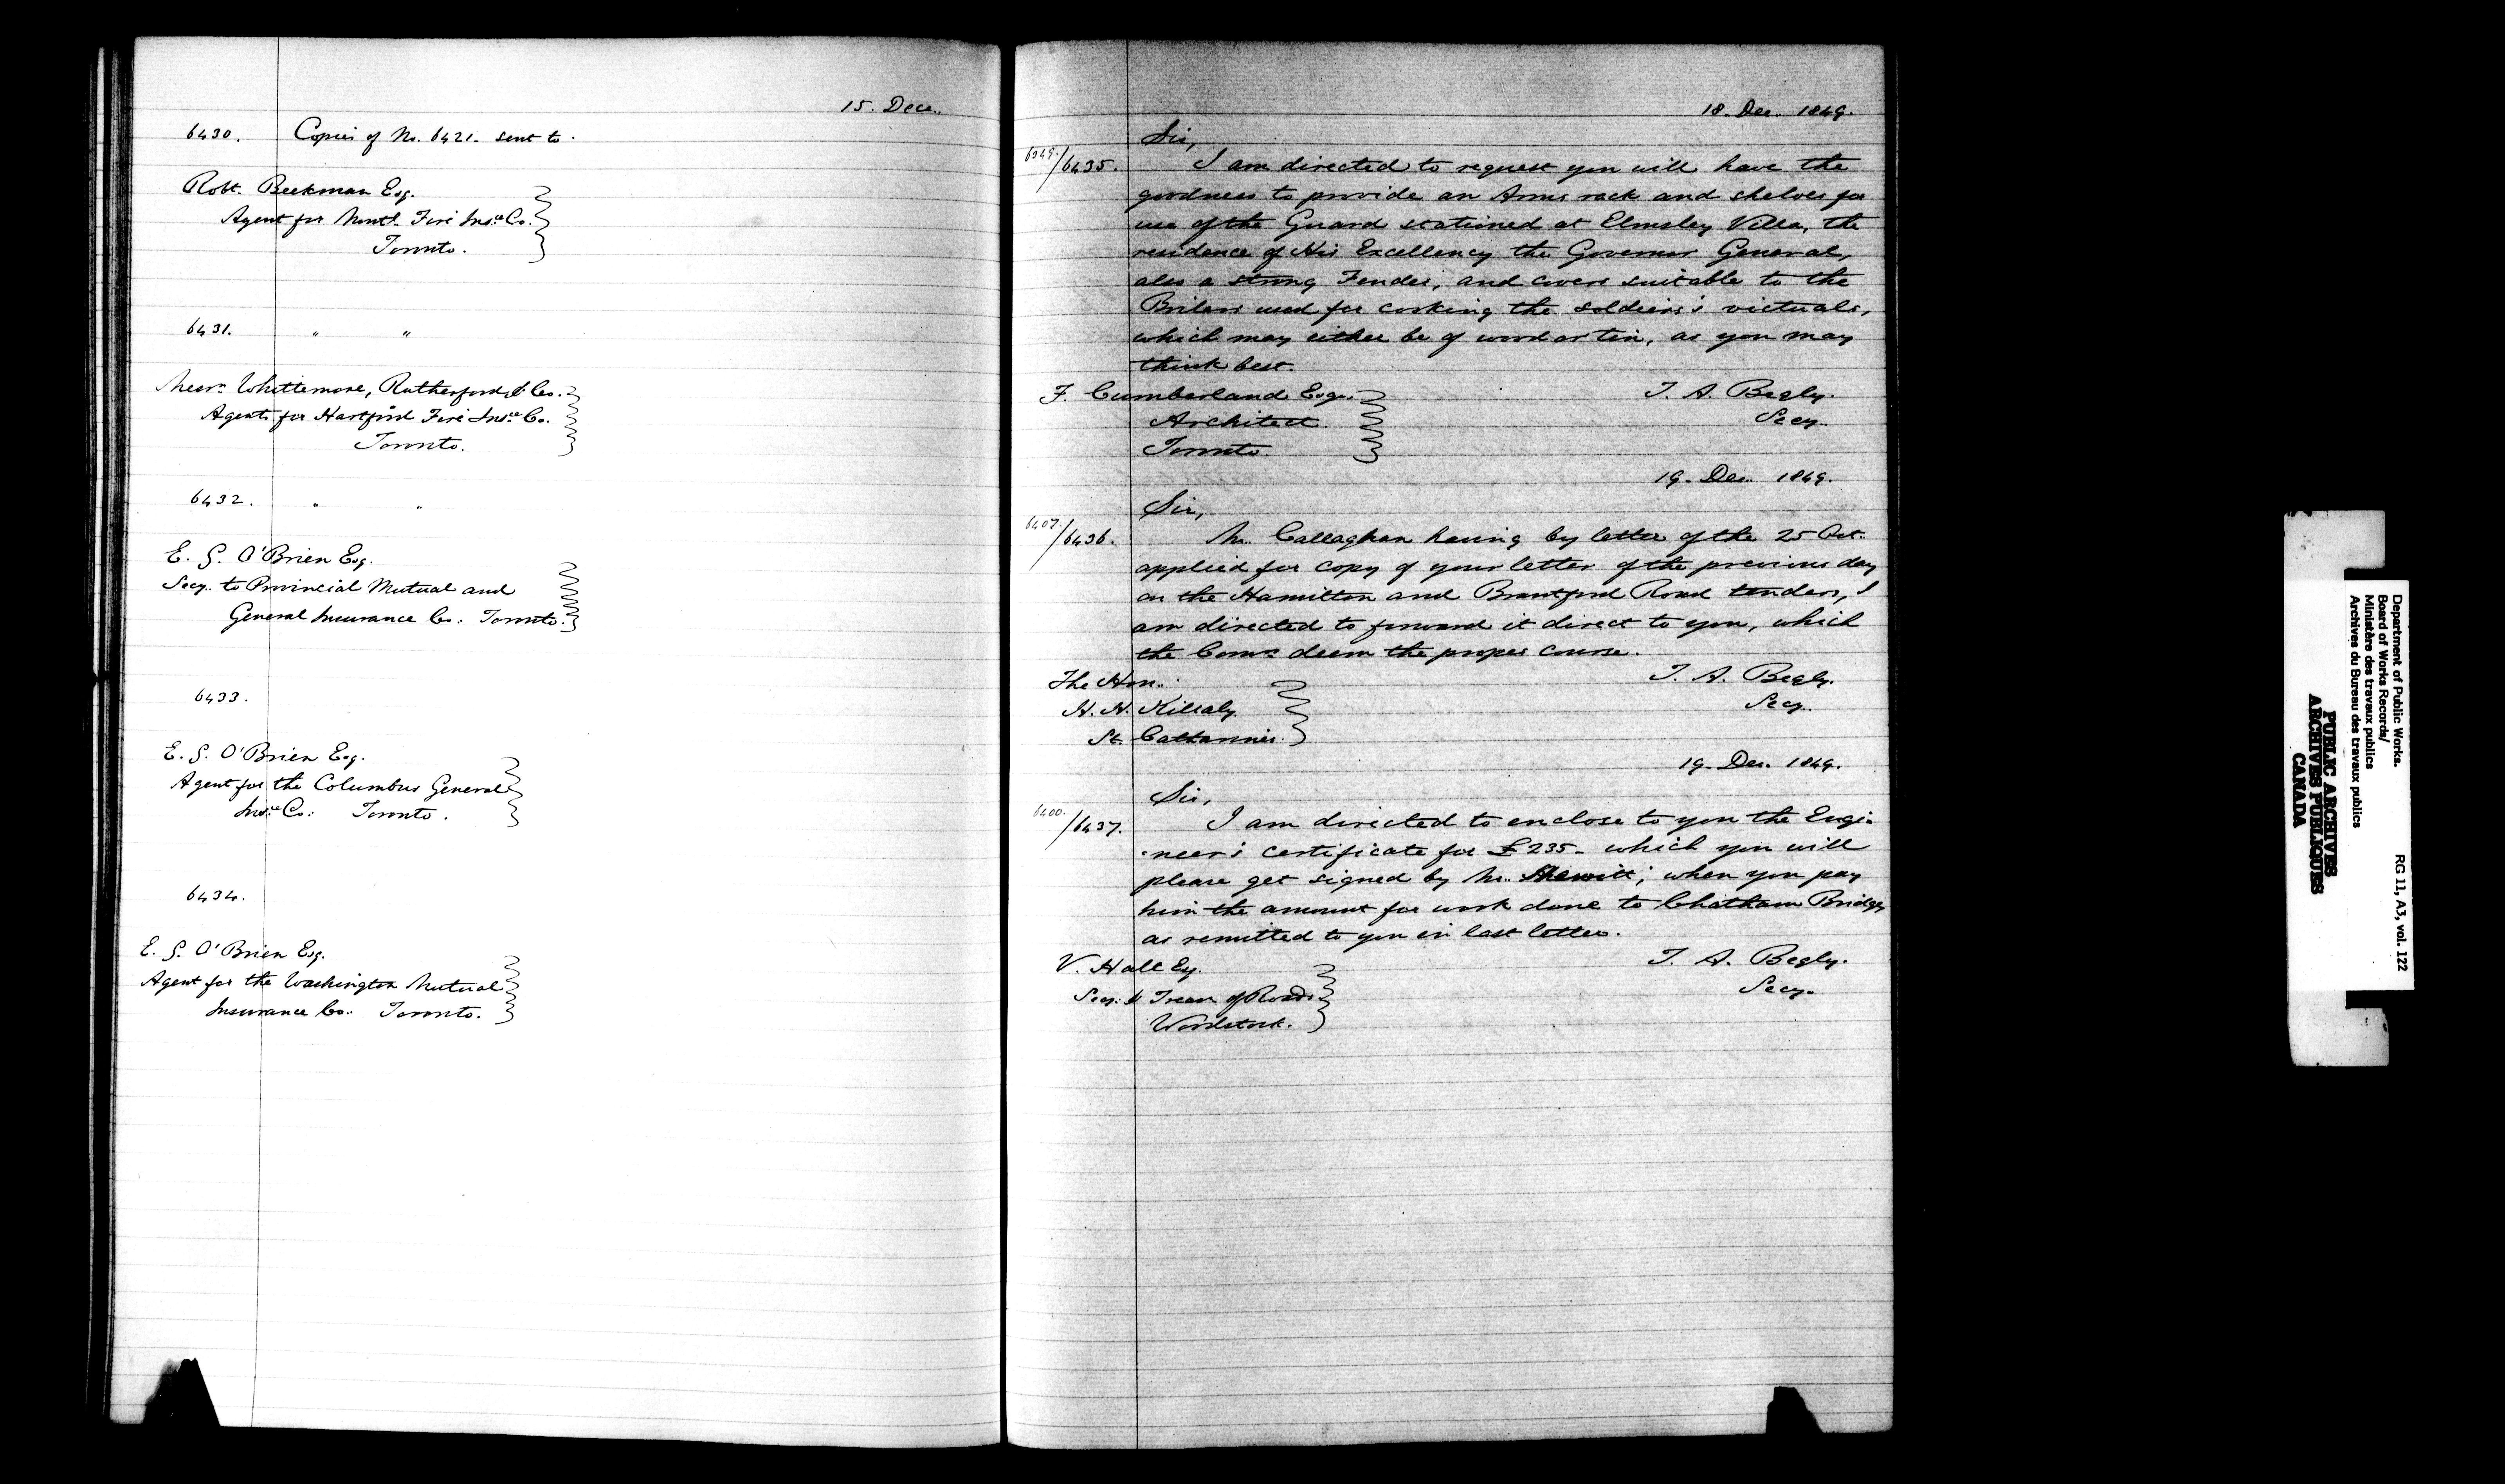 15. Dece.
6430. Copies of No. 6421. sent to.
Robt. Beekman Esq.
Agent for Montl. Fire Insce Co.
Toronto.
6431. " "
Messrs Whittemore, Rutherford, & Co.
Agents for Hartford Fire Insce Co.
Toronto.
6432. " "
E. G. O'Brien Esq.
Secy. to Provincial Mutual and
General Insurance Co: Toronto.
6433.
E. G. O'Brien Esq.
Agent for the Columbus General
Insce Co: Toronto.
6434.
E. G. O'Brien Esq.
Agent for the Washington Mutual
Insurance Co. Toronto.
18. Dec. 1849.
Sir,
6349./6435. I am directed to request you will have the
goodness to provide an Arms rack and shelves for
use of the Guard stationed at Elmsley Villa, the
residence of His Excellency the Governor General,
also a strong Fender, and covers suitable to the
Boilers used for cooking the soldiers's victuals,
which may either be of wood or tin, as you may
think best.
F. Cumberland Esqr. T. A. Begly.
Architect Secy.
Toronto.
19. Dec. 1849.
Sir,
6407./6436. Mr. Callaghan having by letter of the 25 Oct.
applied for copy of your letter of the previous day
on the Hamilton and Brantford Road tenders, I
am directed to forward it direct to you, which
the Comrs deem the proper course.
The Hon. T. A. Begly.
H. H. Killaly Secy.
St. Catharines.
19. Dec. 1849.
Sir,
6400./6437. I am directed to enclose to you the Engi-
-neer's certificate for £235- which you will
please get signed by Mr. Hewitt; when you pay
him the amount for work done to Chatham Bridge
as remitted to you in last letter.
V. Hall Esq. T. A. Begly.
Secy. & Treasr of Roads Secy.
Woodstock.
Department of Public Works. RG 11, A3, vol. 122
Board of Works Records/
Ministère des travaux publics
Archives du Bureau des travaux publics
PUBLIC ARCHIVES
ARCHIVES PUBLIQUES
CANADA